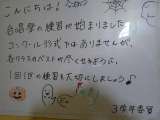 こんにちは!
合唱祭の練習が始まりました
コンクール形式ではありませんが、
各クラスのベストが尽くせるように、
1回1回の練習を大切にしましょう♪
3学年委員